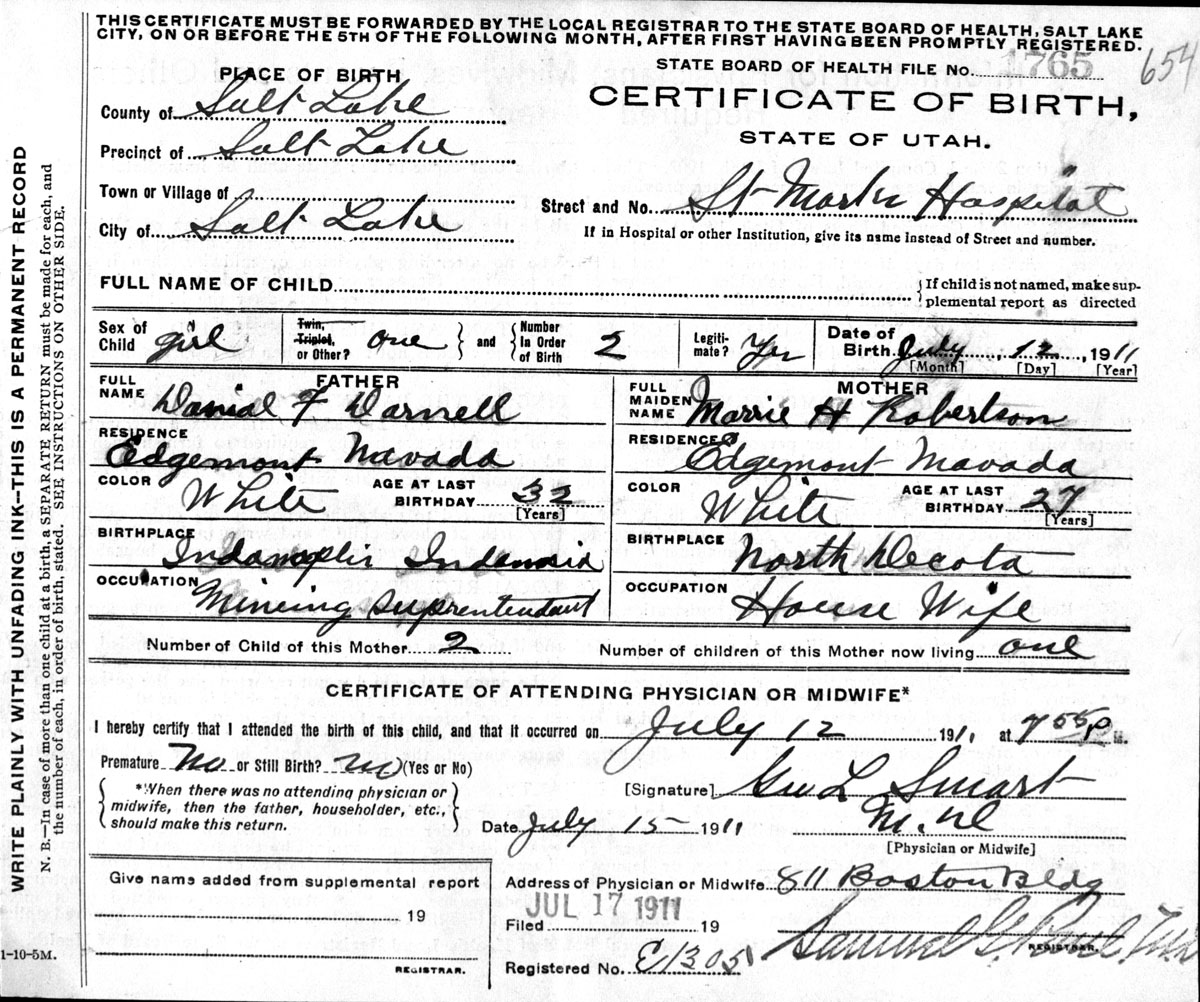 THIS CERTIFICATE MUST BE FORWARDED BY THE LOCAL REGISTRAR TO THE STATE BOARD OF HEALTH, SALT LAKE
CITY, ON OR BEFORE THE 5TH OF THE FOLLOWING MONTH, AFTER FIRST HAVING BEEN PROMPTLY REGISTERED.
STATE BOARD OF HEALTH FILE No. 1765 654
CERTIFICATE OF BIRTH,
STATE OF UTAH.
PLACE OF BIRTH
County of Salt Lake
Precinct of Salt Lake
Town or Village of
City of Salt Lake
Street and No. St Marks Hospital
If in Hospital or other Institution, give its name instead of Street and number.
FULL NAME OF CHILD
If child is not named, make sup-
plemental report as directed
Sex of Child girl
Twin, Triplet, or Other? one and Number In Order of Birth 2
Legiti-mate? Yes
Date of Birth July 12, 1911
[Month] [Day] [Year]
FATHER
FULL NAME Danial F Darnell
RESIDENCE Edgemont Navada
COLOR White AGE AT LAST BIRTHDAY 32 [Years]
BIRTHPLACE
OCCUPATION Mineing Suprentendant
MOTHER
FULL MAIDEN NAME Marrie H Robertson
RESIDENCE Edgemont Navada
COLOR White AGE AT LAST BIRTHDAY 27 [Years]
BIRTHPLACE North Decota
OCCUPATION House Wife
Number of Child of this Mother 2
Number of children of this Mother now living one
CERTIFICATE OF ATTENDING PHYSICIAN OR MIDWIFE*
I hereby certify that I attended the birth of this child, and that it occurred on July 12 1911, at 7 55 P M.
Premature No or Still Birth? no (Yes or No)
*When there was no attending physician or
midwife, then the father, householder, etc.,
should make this return.
[Signature] Geo L Smart
M.D
[Physician or Midwife]
Date July 15 1911
Give name added from supplemental report
19
REGISTRAR.
Address of Physician or Midwife 811 Boston Bldg
JUL 17 1911
Filed 19
Samuel G.
REGISTRAR.
Registered No. E1305
1-10-5M.
WRITE PLAINLY WITH UNFADING INK--THIS IS A PERMANENT RECORD
N. B.—In case of more than one child at a birth, a SEPARATE RETURN must be made for each, and
the number of each, in order of birth, stated. SEE INSTRUCTIONS ON OTHER SIDE.